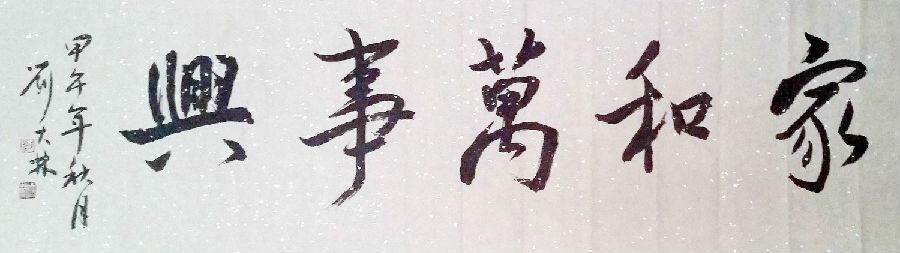 家和萬事興
甲午年秋月
大林